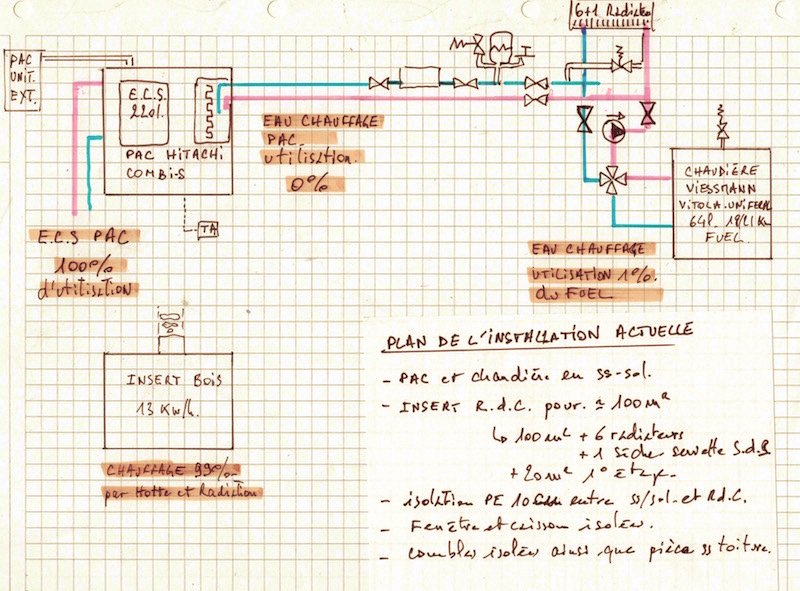 6+1 Radiateur
PAC
UNIT.
EXT.
E.C.S.
220l.
PAC HITACHI
COMBI-S
EAU CHAUFFAGE
PAC.
utilisation.
0%
TA
E.C.S PAC
100%
d'utilisation
CHAUDIÈRE
VIESSMANN
VITOLA.UNIFERAL
64l. 18/21 Kw
FUEL.
EAU CHAUFFAGE
UTILISATION 1%.
du FUEL
INSERT BOIS
13 Kw/h.
CHAUFFAGE 99%
par Hotte et Radiation
PLAN DE L'INSTALLATION ACTUELLE
- PAC et chaudière en ss-sol.
- INSERT R.d.C. pour. ≃ 100m²
↳ 100m² + 6 radiateurs
+ 1 sèche serviette S.d.B
+ 20m² 1° étage.
- isolation PE 10cm entre ss/sol et Rd.C.
- Fenêtre et caisson isolés.
- combles isolés ainsi que pièce ss toiture.